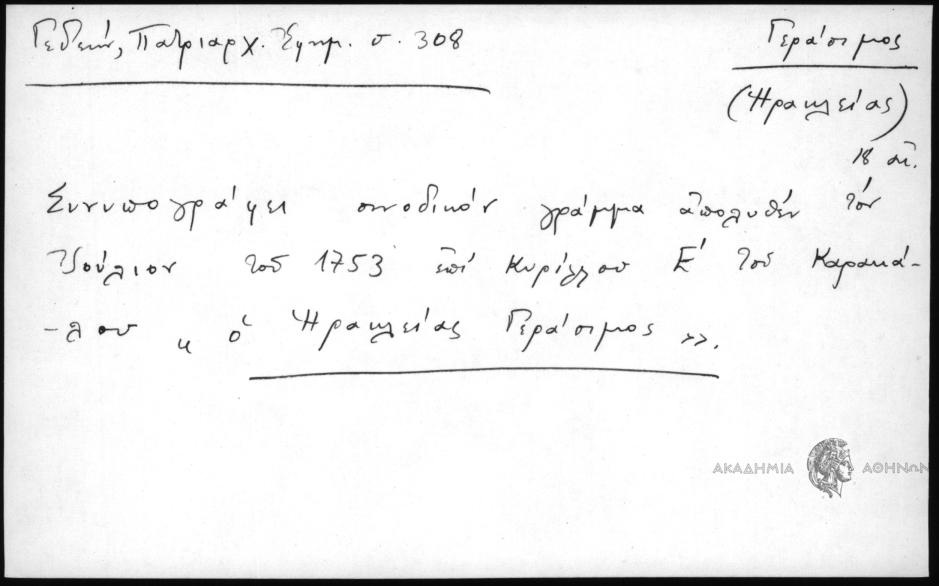 Γεδεών, Πατριαρχ. Ἐφημ. σ. 308
Γεράσιμος
(Ἡρακλείας)
18 αἰ.
Συνυπογράφει συνοδικόν γράμμα ἀπολυθέν τόν
Ἰούλιον τοῦ 1753 ἐπί Κυρίλλου Ε´ τοῦ Καρακά-
-λου « ὁ Ἡρακλείας Γεράσιμος ».
ΑΚΑΔΗΜΙΑ ΑΘΗΝΩΝ